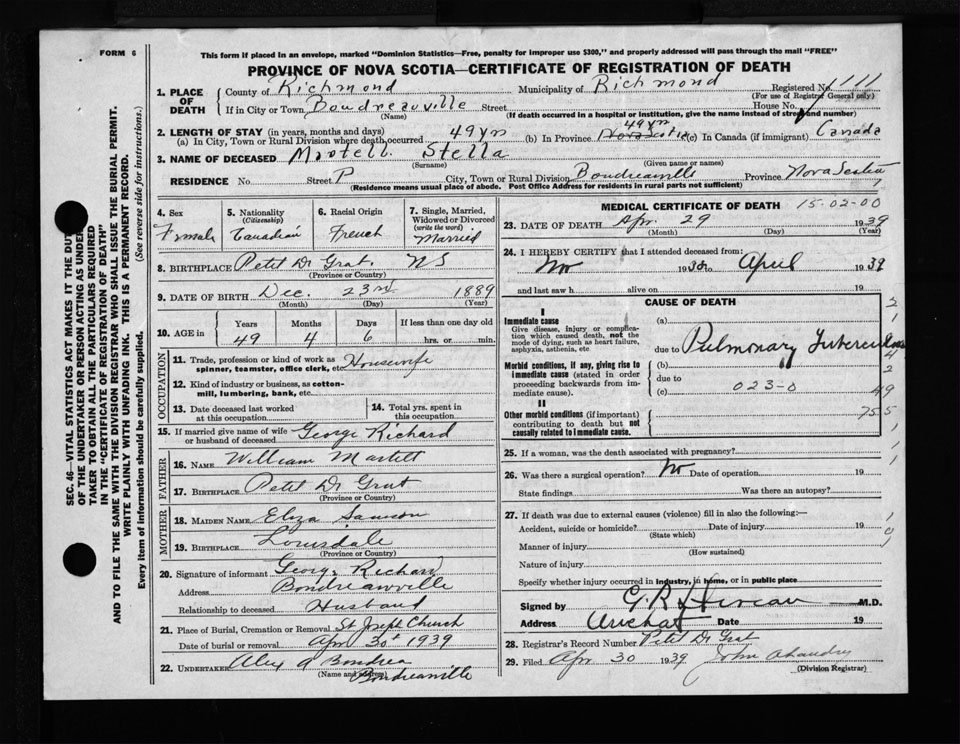 FORM 6
This form if placed in an envelope, marked "Dominion Statistics—Free, penalty for improper use $300," and properly addressed will pass through the mail "FREE"
PROVINCE OF NOVA SCOTIA—CERTIFICATE OF REGISTRATION OF DEATH
1. PLACE OF DEATH
County of Richmond Municipality of Richmond Registered No. 1111
(For use of Registrar General only)
If in City or Town Boudreauville Street House No.
(Name) (If death occurred in a hospital or institution, give the name instead of street and number)
2. LENGTH OF STAY (in years, months and days)
(a) In City, Town or Rural Division where death occurred 49 yrs (b) In Province 49 yrs Nova Scotia (c) In Canada (if immigrant) Canada
3. NAME OF DECEASED Martell Stella
(Surname) (Given name or names)
RESIDENCE No. Street P City, Town or Rural Division Boudreauville Province Nova Scotia
(Residence means usual place of abode. Post Office Address for residents in rural parts not sufficient)
4. Sex Female
5. Nationality (Citizenship) Canadian
6. Racial Origin French
7. Single, Married, Widowed or Divorced (write the word) Married
8. BIRTHPLACE Petit De Grat. NS
(Province or Country)
9. DATE OF BIRTH Dec. 23rd 1889
(Month) (Day) (Year)
10. AGE in Years Months Days If less than one day old
49 4 6 hrs. or min.
OCCUPATION
11. Trade, profession or kind of work as spinner, teamster, office clerk, etc. Housewife
12. Kind of industry or business, as cotton-mill, lumbering, bank, etc.
13. Date deceased last worked at this occupation
14. Total yrs. spent in this occupation
15. If married give name of wife or husband of deceased George Richard
FATHER
16. NAME William Martell
17. BIRTHPLACE Petit De Grat
(Province or Country)
MOTHER
18. MAIDEN NAME Eliza Samson
19. BIRTHPLACE Louisdale
(Province or Country)
20. Signature of informant George Richard
Address Boudreauville
Relationship to deceased Husband
21. Place of Burial, Cremation or Removal St Joseph Church
Date of burial or removal Apr 30th 1939
22. UNDERTAKER Alex A Boudrea
(Name and address) Boudreauville
MEDICAL CERTIFICATE OF DEATH 15-02-00
23. DATE OF DEATH Apr. 29 1939
(Month) (Day) (Year)
24. I HEREBY CERTIFY that I attended deceased from:
1938 to April 1939
and last saw h alive on 19
CAUSE OF DEATH
I
Immediate cause
Give disease, injury or complication which caused death, not the mode of dying, such as heart failure, asphyxia, asthenia, etc
(a)
due to Pulmonary Tuberculosis
Morbid conditions, if any, giving rise to immediate cause (stated in order proceeding backwards from immediate cause).
(b)
due to
(c) 023-0
II
Other morbid conditions (if important) contributing to death but not causally related to immediate cause.
25. If a woman, was the death associated with pregnancy?
26. Was there a surgical operation? No Date of operation 19
State findings Was there an autopsy?
27. If death was due to external causes (violence) fill in also the following:—
Accident, suicide or homicide? Date of injury 19
(State which)
Manner of injury
(How sustained)
Nature of injury
Specify whether injury occurred in industry, in home, or in public place
Signed by M.D.
Address Arichat Date 19
28. Registrar's Record Number Petit De Grat
29. Filed Apr 30 1939 John
(Division Registrar)
SEC. 46—VITAL STATISTICS ACT MAKES IT THE DUTY
OF THE UNDERTAKER OR PERSON ACTING AS UNDER-
TAKER TO OBTAIN ALL THE PARTICULARS REQUIRED
IN THE "CERTIFICATE OF REGISTRATION OF DEATH"
AND TO FILE THE SAME WITH THE DIVISION REGISTRAR WHO SHALL ISSUE THE BURIAL PERMIT.
WRITE PLAINLY WITH UNFADING INK. THIS IS A PERMANENT RECORD.
Every item of information should be carefully supplied. (See reverse side for instructions.)